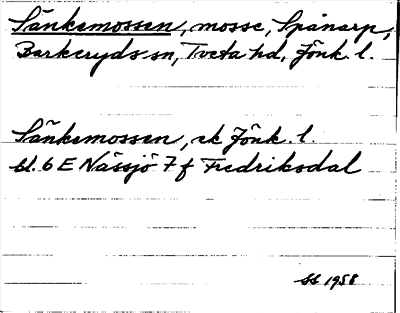 Sänkemossen, mosse, Spånarp,
Barkeryds sn, Tveta hd, Jönk. l.
Sänkemossen, ek Jönk. l.
bl. 6 E Nässjö 7 f Fredriksdal
SS 1958